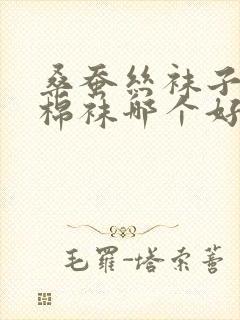 桑蚕丝袜子
棉袜哪个好
毛羅-塔索蒈